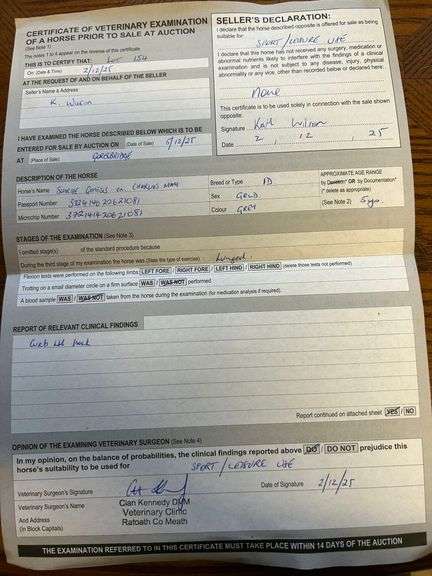 CERTIFICATE OF VETERINARY EXAMINATION
OF A HORSE PRIOR TO SALE AT AUCTION
(See Note 1)
The notes 1 to 5 appear on the reverse of this certificate.
THIS IS TO CERTIFY THAT: Lot 154
On (Date & Time) 2/12/25
AT THE REQUEST OF AND ON BEHALF OF THE SELLER
Seller's Name & Address
K. Wilson
I HAVE EXAMINED THE HORSE DESCRIBED BELOW WHICH IS TO BE
ENTERED FOR SALE BY AUCTION ON (Date of Sale) 5/12/25
AT (Place of Sale) GORESBRIDGE
SELLER'S DECLARATION:
I declare that the horse described opposite is offered for sale as being
suitable for SPORT / LEISURE USE
I declare that this horse has not received any surgery, medication or
abnormal nutrients likely to interfere with the findings of a clinical
examination and is not subject to any disease, injury, physical
abnormality or any vice, other than recorded below or declared here:
None
This certificate is to be used solely in connection with the sale shown
opposite.
Signature Kail Wilson
Date 2 . 12 . 25
DESCRIPTION OF THE HORSE
Horse's Name
Passport Number
Microchip Number
Breed or Type ID
Sex GELD
Colour GREY
APPROXIMATE AGE RANGE
by Dentition* OR by Documentation*
(* delete as appropriate)
(See Note 2) 5yo
STAGES OF THE EXAMINATION (See Note 3)
I omitted stage(s) of the standard procedure because
During the third stage of my examination the horse was (State the type of exercise) Lunged
Flexion tests were performed on the following limbs LEFT FORE / RIGHT FORE / LEFT HIND / RIGHT HIND (delete those tests not performed)
Trotting on a small diameter circle on a firm surface WAS / WAS NOT performed.
A blood sample WAS / WAS NOT taken from the horse during the examination (for medication analysis if required).
REPORT OF RELEVANT CLINICAL FINDINGS
Curb LH hock
Report continued on attached sheet YES / NO
OPINION OF THE EXAMINING VETERINARY SURGEON (See Note 4)
In my opinion, on the balance of probabilities, the clinical findings reported above DO / DO NOT prejudice this
horse's suitability to be used for SPORT / LEISURE USE
Veterinary Surgeon's Signature
Date of Signature 2/12/25
Veterinary Surgeon's Name
And Address
(in Block Capitals)
Cian Kennedy DMM
Veterinary Clinic
Ratoath Co Meath
THE EXAMINATION REFERRED TO IN THIS CERTIFICATE MUST TAKE PLACE WITHIN 14 DAYS OF THE AUCTION